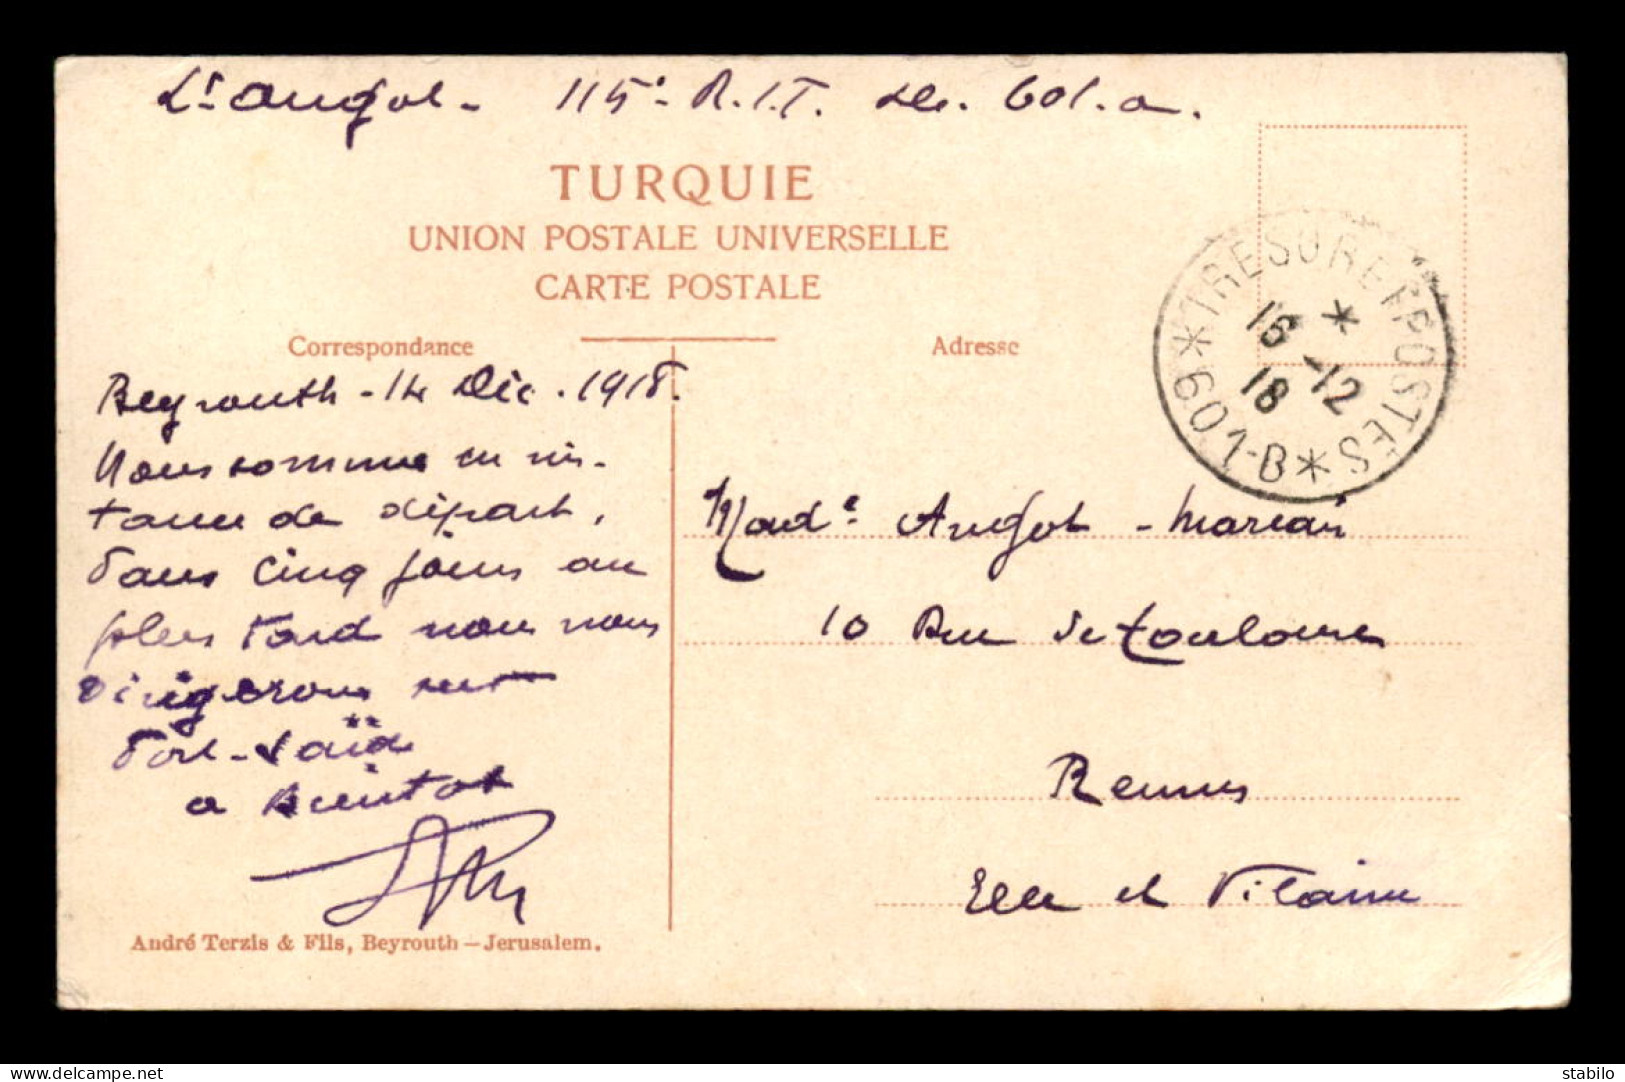 Lt Angot - 115e R.I.T. Sec. 601. a.
TURQUIE
UNION POSTALE UNIVERSELLE
CARTE POSTALE
Correspondance
Adresse
*TRESOR ET POSTES*
16 -12
18
601-B
Beyrouth - 14 Déc. 1918.
Nous sommes en ins-
tance de départ,
Dans cinq jours au
plus tard nous nous
dirigerons sur
Port-Saïd
a Bientot
Made Angot - Marcais
10 Rue de Toulouse
Rennes
Ille et Vilaine
André Terzis & Fils, Beyrouth — Jerusalem.
delcampe.net
stabilo